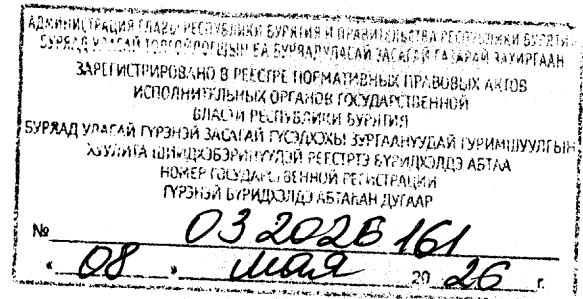 АДМИНИСТРАЦИЯ ГЛАВЫ РЕСПУБЛИКИ БУРЯТИЯ И ПРАВИТЕЛЬСТВА РЕСПУБЛИКИ БУРЯТИЯ
БУРЯАД УЛАСАЙ ТОЛГОЙЛОГШЫН БА БУРЯАД УЛАСАЙ ЗАСАГАЙ ГАЗАРАЙ ЗАХИРГААН
ЗАРЕГИСТРИРОВАНО В РЕЕСТРЕ НОРМАТИВНЫХ ПРАВОВЫХ АКТОВ
ИСПОЛНИТЕЛЬНЫХ ОРГАНОВ ГОСУДАРСТВЕННОЙ
ВЛАСТИ РЕСПУБЛИКИ БУРЯТИЯ
БУРЯАД УЛАСАЙ ГҮРЭНЭЙ ЗАСАГАЙ ГҮСЭДХЭХЫ ЗУРГААНУУДАЙ ГУРИМШУУЛГЫН
ХУУЛИТА ШИИДХЭБЭРИНҮҮДЭЙ РЕЕСТРТЭ БҮРИДХЭЛДЭ АБТАА
НОМЕР ГОСУДАРСТВЕННОЙ РЕГИСТРАЦИИ
ГҮРЭНЭЙ БҮРИДХЭЛДЭ АБТАҺАН ДУГААР
№ 032026161
« 08 » мая 20 26 г.